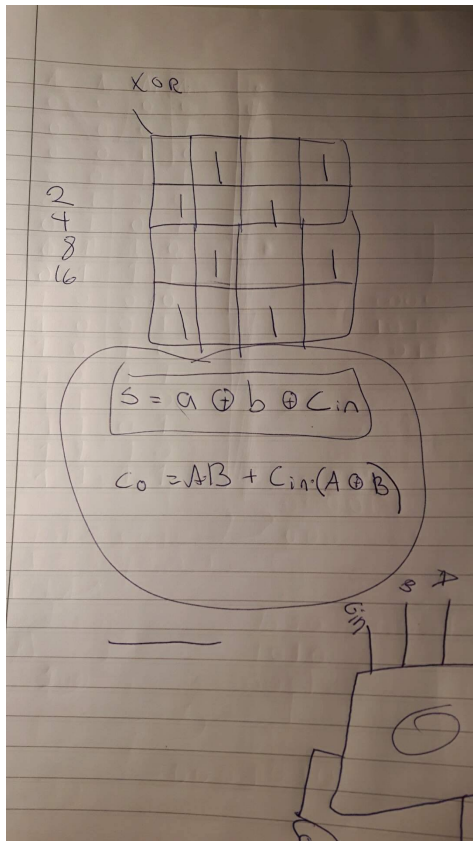 XOR
1 1
1 1
2
4
8
16
1 1
1 1
S = a ⊕ b ⊕ Cin
Co = A·B + Cin·(A ⊕ B)
Cin B A